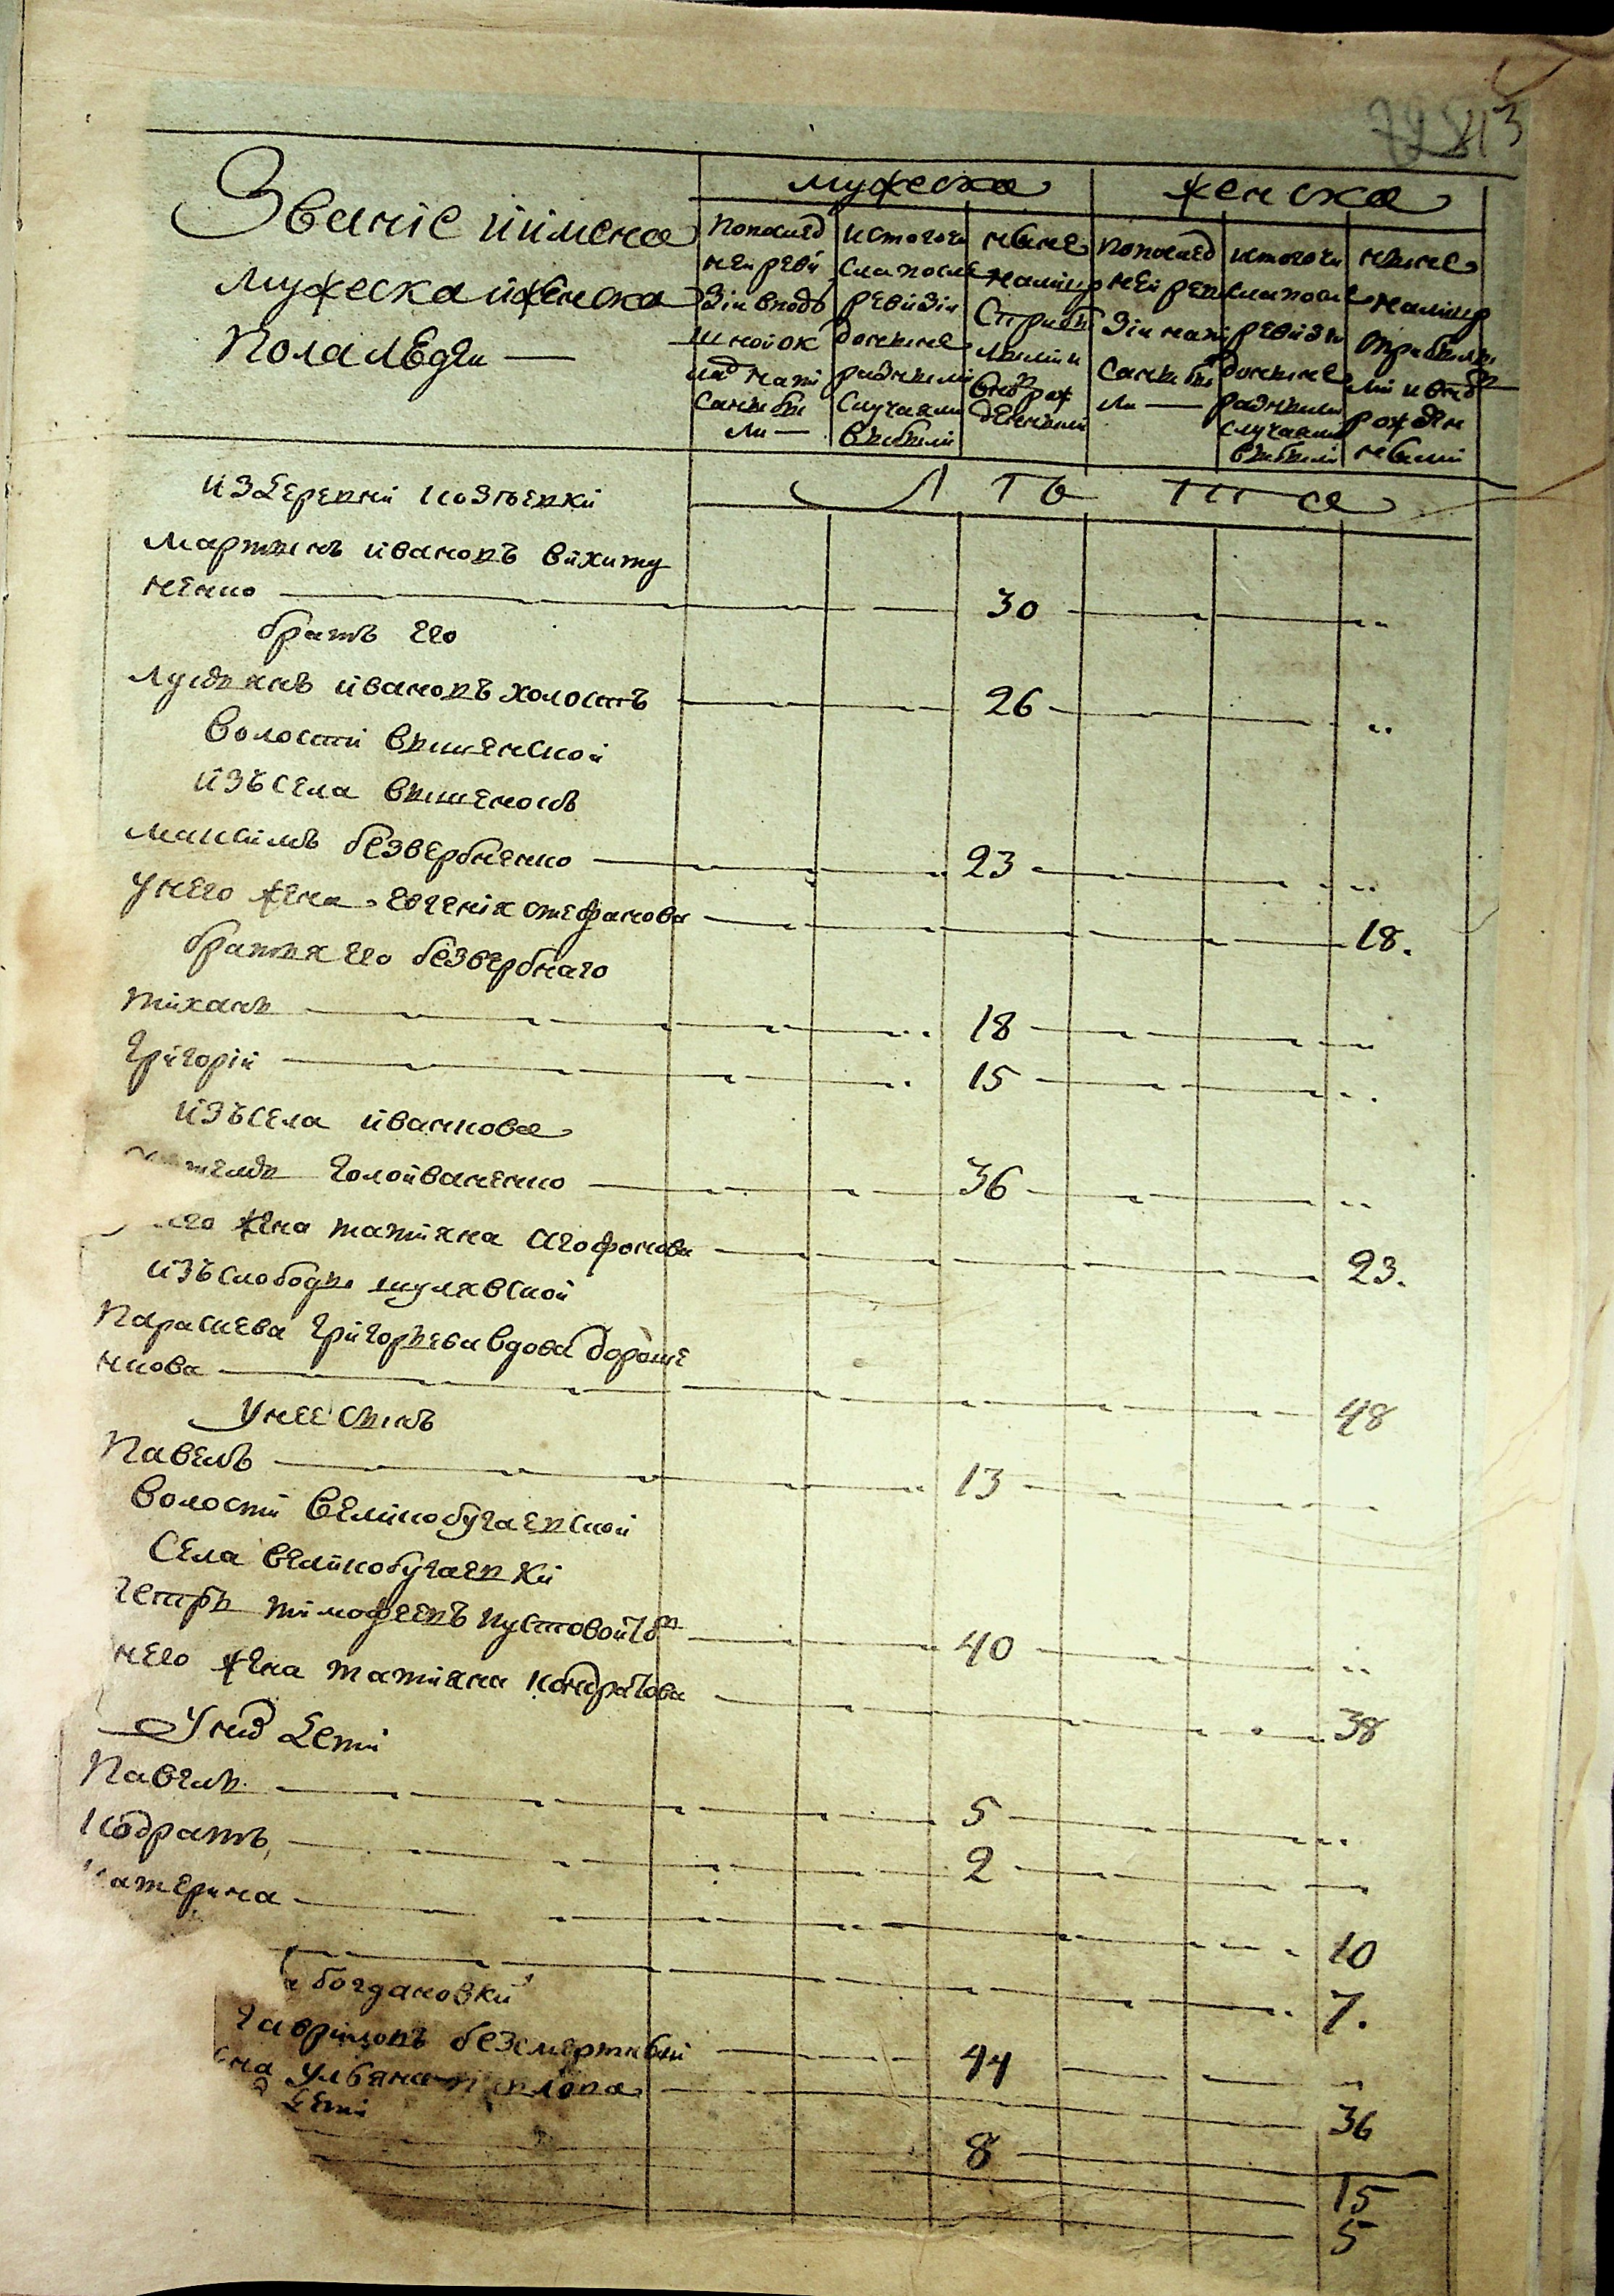 813
мужеска женска
Званіе иимена
мужеска иженска
пола людеи
попослед
неи реви
зіи вподъ
шнои ок
лад напи
саны бы
ли
истогочи
сла после
ревизіи
доныне
разными
случаями
выбыли
ныне
налицо
спрнбы
лыми и
внов рож
денными
попослед
неи реви
зіи напи
саны бы
ли
истогочи
сла после
ревизіи
доныне
разными
случаями
выбыли
ныне
налицо
сприбылы
ми и внов
рожден
ными
Л Т
из деревни
Мартынъ ивановъ
ненко 30
братъ его
лукьянъ ивановъ холостъ 26
волости вышенскои
изъ села вышенокъ
максимъ безвербненко 23
унего жена евгенія стефанова 18.
братья его безвербнаго
тихонъ 18
григоріи 15
изъ села иванкова
голоиваненко 36
его жена татияна агофонова 23.
изъ слободы шулявскои
параскева григорьева вдова бороше
нкова 48
унее сынъ
павелъ 13
волости великобугаевскои
села великобугаевки
петръ тимофеевъ пустовоит 40
него жена татияна кондратова 38
уних дети
павелъ 5
кодратъ 2
катерина 10
7.
богдановки
гавриловъ безсмертныи 44
ульяна 36
дети
8
15
5